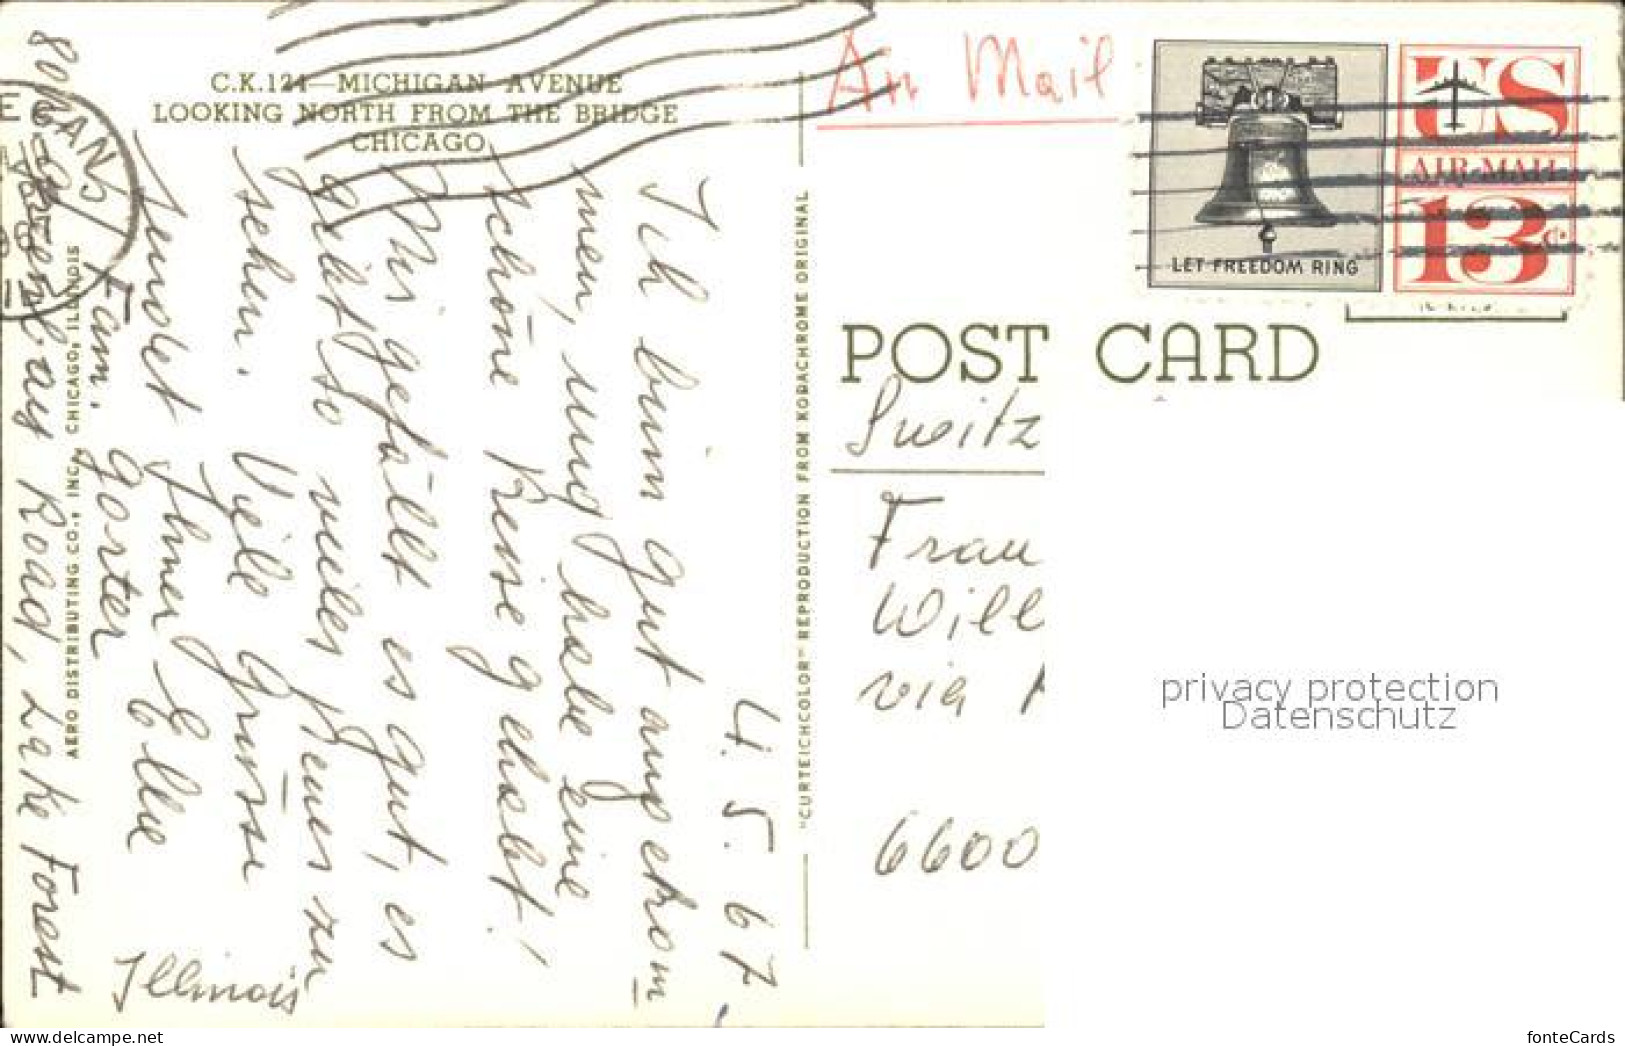 C.K.124—MICHIGAN AVENUE
LOOKING NORTH FROM THE BRIDGE
CHICAGO
4. 5. 67.
Ich bin gut angekom
men, und habe eine
schöne Reise gehabt!
Mir gefällt es gut, es
gibt so vieles Neues zu
sehen. Viele Grüsse
sendet Ihnen Ella
Fam. Gorter
Road, Lake Forest
Illinois
AERO DISTRIBUTING CO., INC., CHICAGO, ILLINOIS
"CURTEICHCOLOR" REPRODUCTION FROM KODACHROME ORIGINAL
Air Mail
LET FREEDOM RING
US
AIR MAIL
13c
POST CARD
Switz
Frau
Will
via
6600
privacy protection
Datenschutz
www.delcampe.net
fonteCards